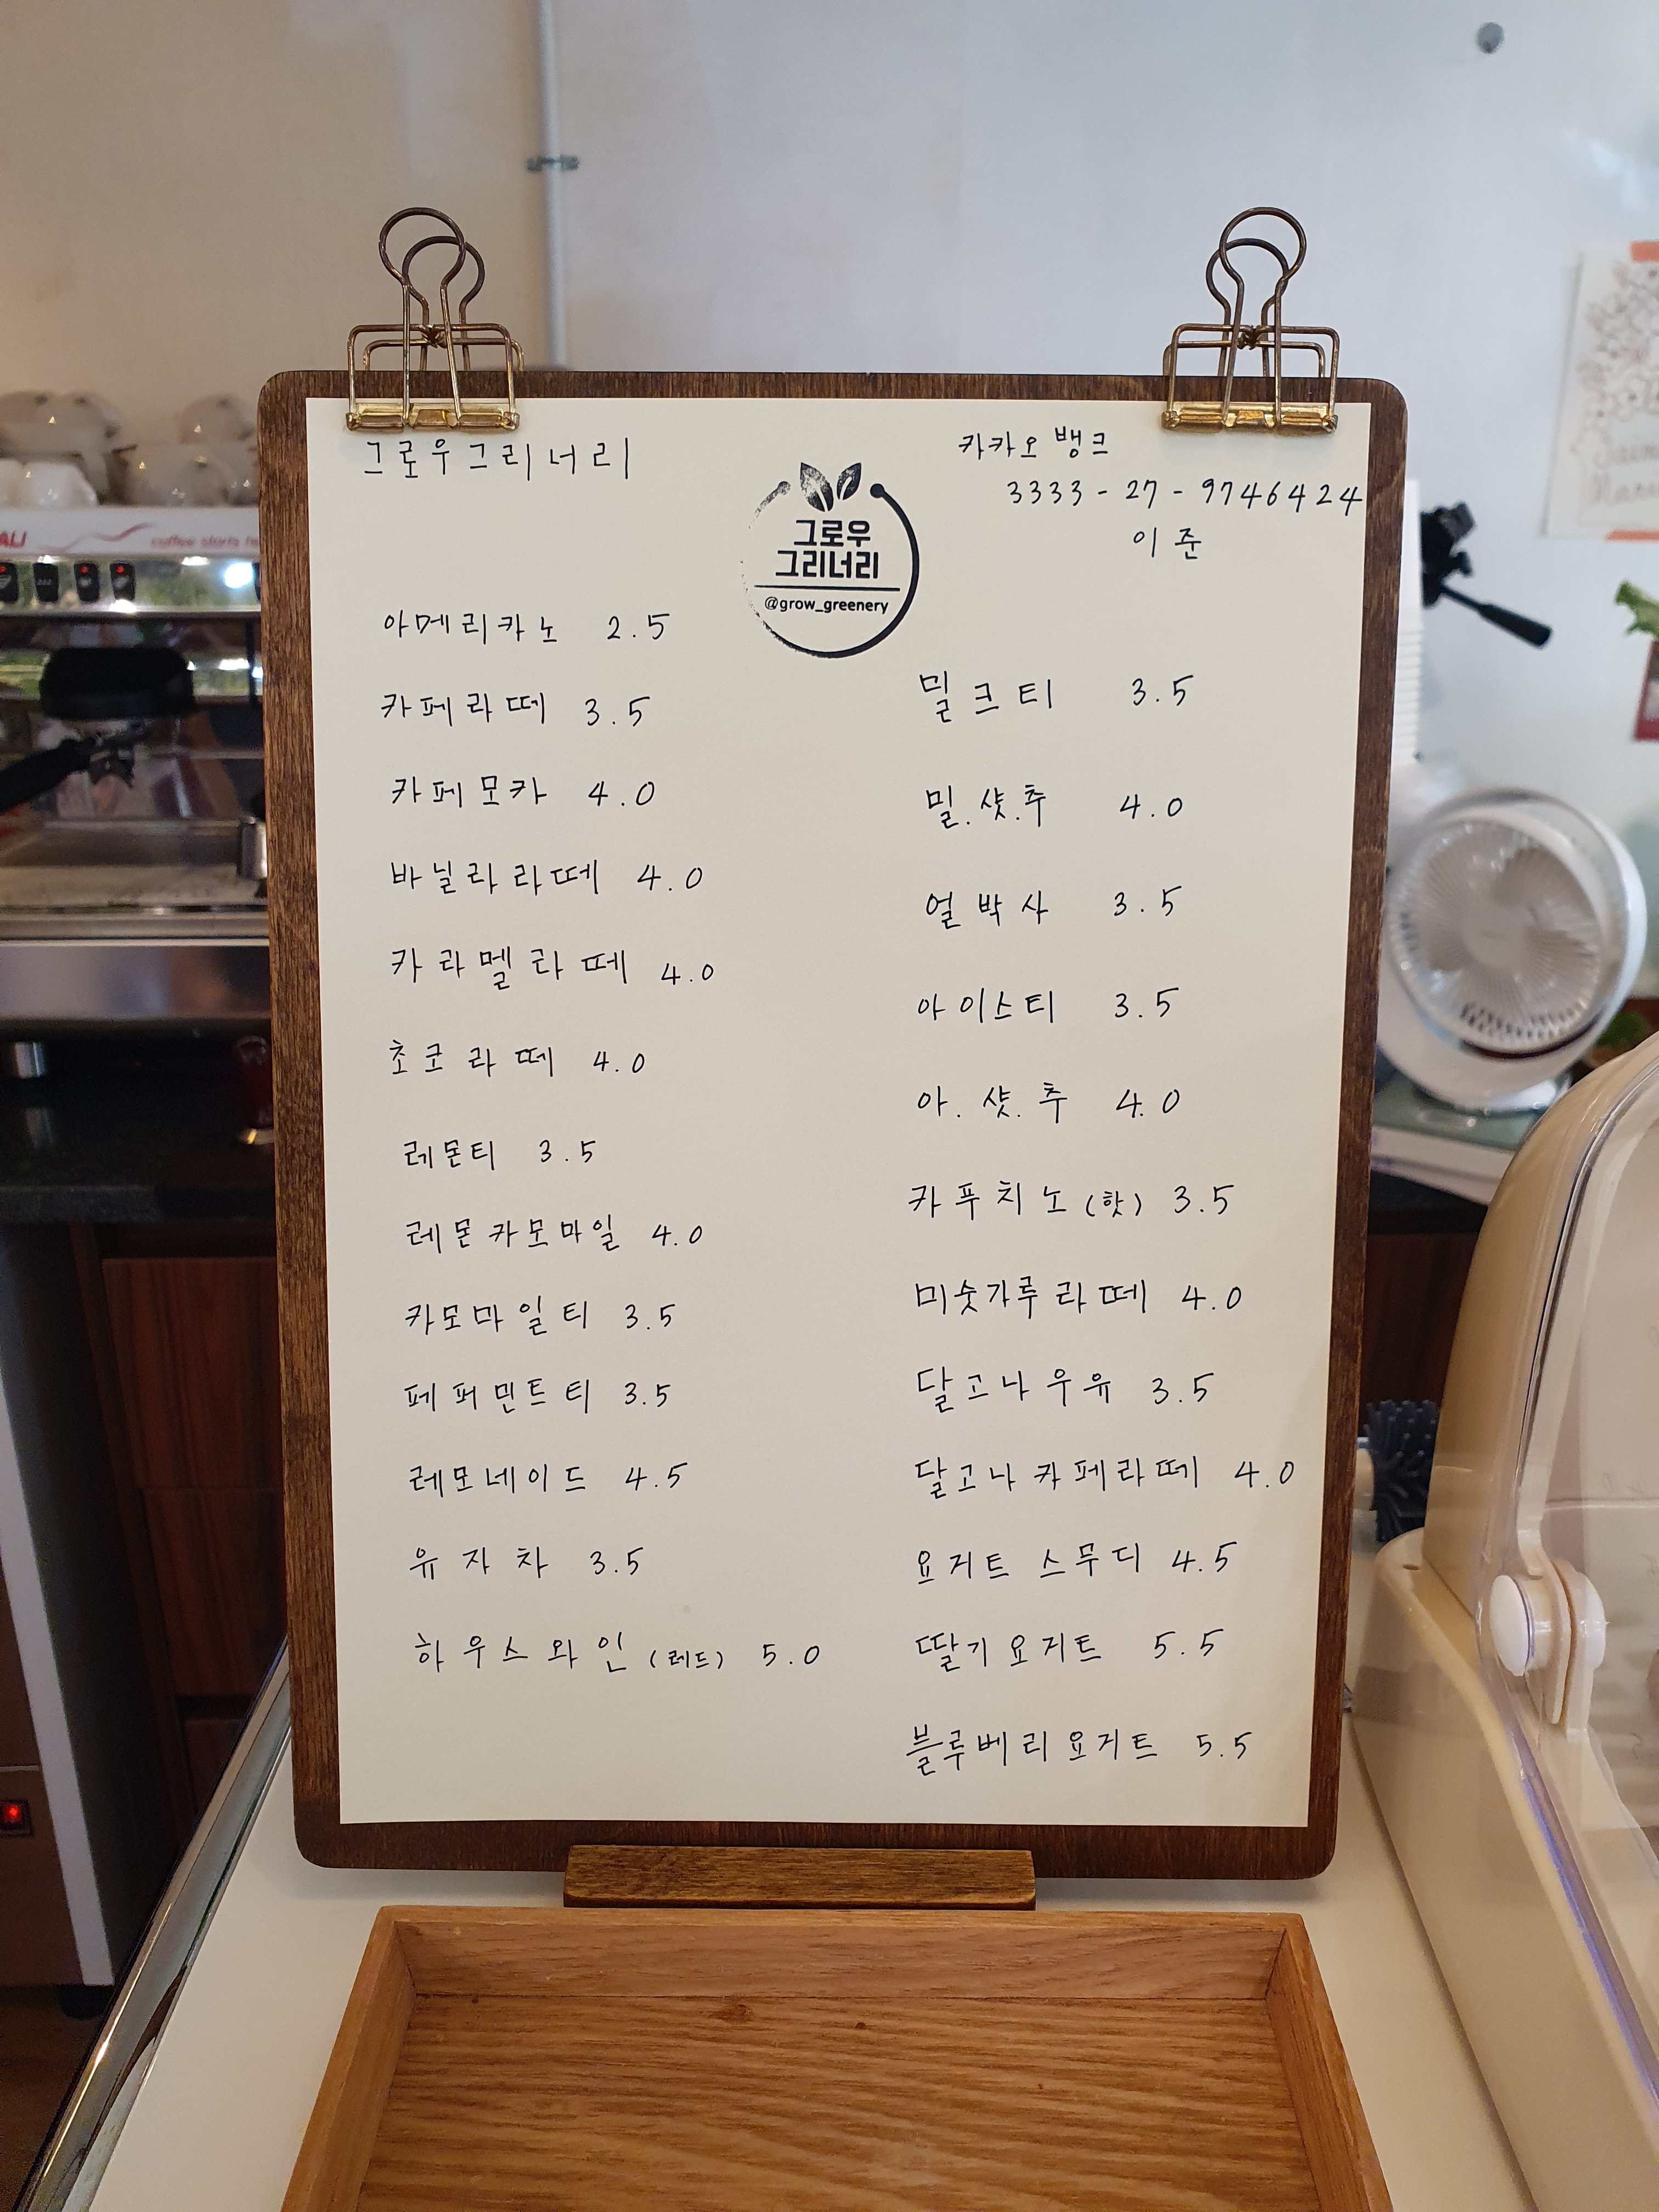 그로우그리너리
카카오 뱅크
3333-27-9746424
이준
그로우
그리너리
@grow_greenery
아메리카노 2.5
카페라떼 3.5
카페모카 4.0
바닐라라떼 4.0
카라멜라떼 4.0
초코라떼 4.0
레몬티 3.5
레몬카모마일 4.0
카모마일티 3.5
페퍼민트티 3.5
레모네이드 4.5
유자차 3.5
하우스와인 (레드) 5.0
밀크티 3.5
밀.샷.추 4.0
얼박사 3.5
아이스티 3.5
아.샷.추 4.0
카푸치노 (핫) 3.5
미숫가루라떼 4.0
달고나우유 3.5
달고나카페라떼 4.0
요거트 스무디 4.5
딸기요거트 5.5
블루베리요거트 5.5
coffee starts